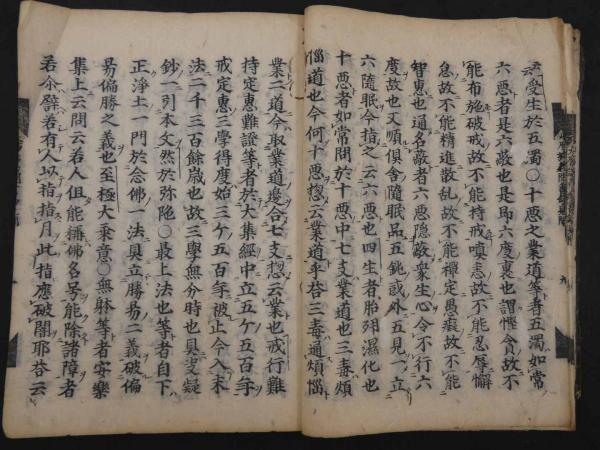 云受生於五濁〇十惡之業道等者五濁如常
六惡者是六蔽也是即六度裏也謂慳貪故不
能布施破戒故不能持戒嗔恚故不能忍辱懈
怠故不能精進散乱故不能禪定愚癡故不能
智惠也通名蔽者六惡隱蔽衆生心令不行六
度故也又順俱舎隨眠品五鈍或外五見一立
六隨眠今指之云六惡也四生者胎卵濕化也
十惡者如常問於十惡中七支業道也三毒煩
惱道也今何十惡惣云業道乎答三毒通煩惱
業二道今取業道邊合七支惣云業也戒行難
持定惠難證等者於大集經中立五ケ五百年
戒定惠三學得度始三ケ五百年被止今入末
法二千三百餘歳也故三學無分時也具支凝
鈔一引本文然於弥陁〇最上法也等者自下
正淨土一門於念佛一法具立勝易二義破偏
易偏勝之義也至極大乗意〇無躰等者安樂
集上云問云若人但能稱佛名号能除諸障者
若尒譬若有人以指指月此指應破闇耶荅云